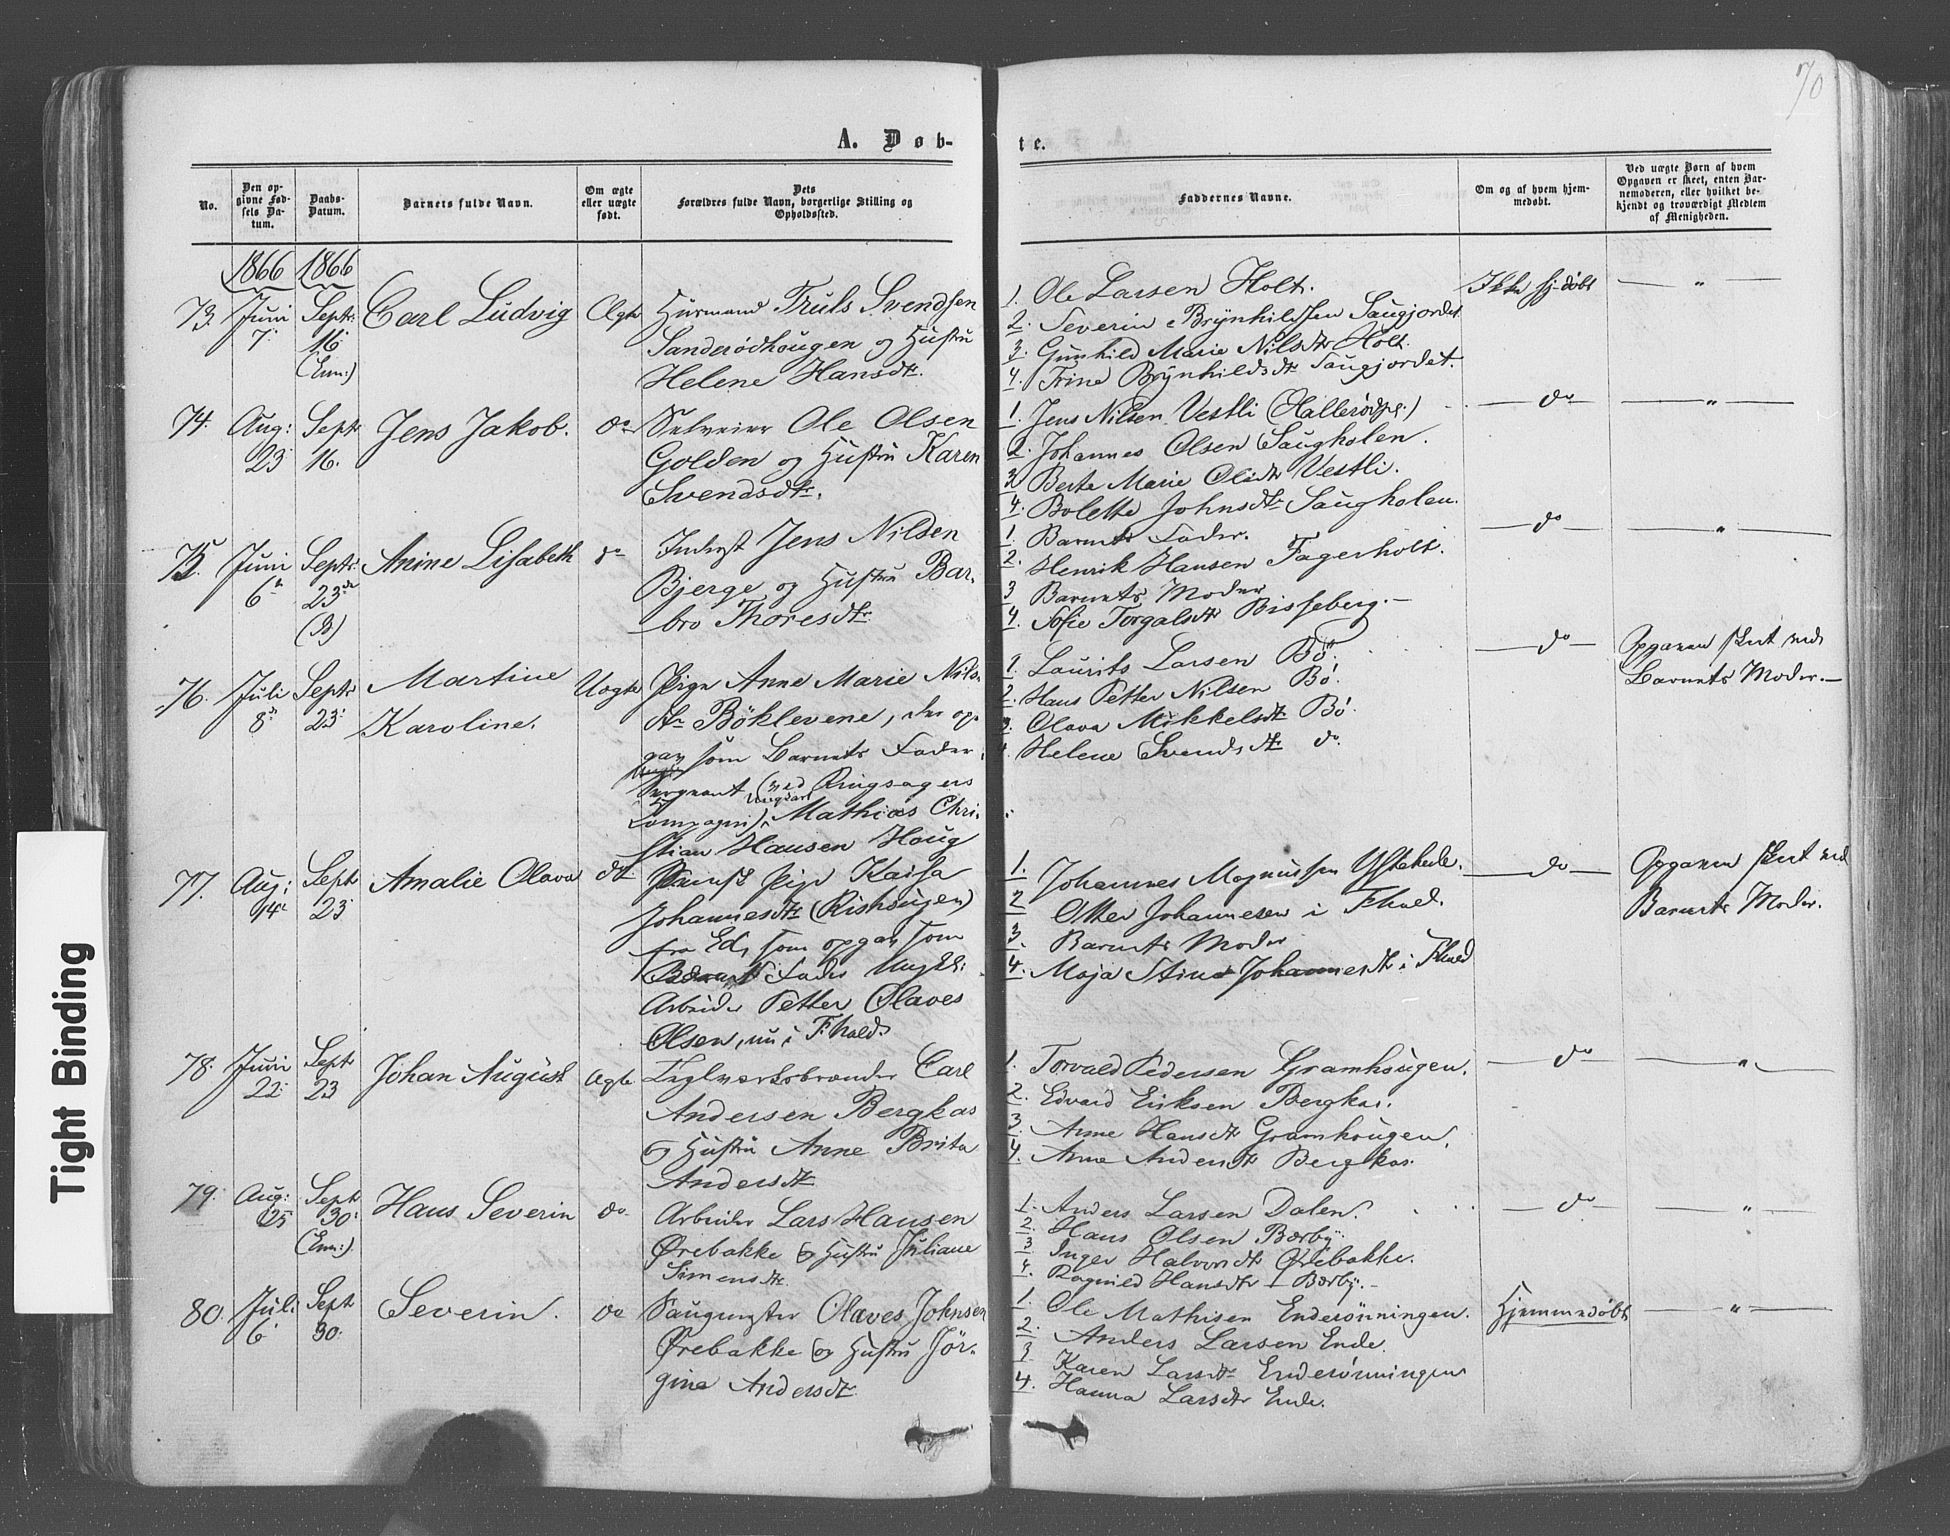 70
A. Døb-
te.
No.
Den op-
givne Fød-
sels Da-
tum.
Daabs-
Datum.
Barnets fulde Navn.
Om ægte
eller uægte
født.
Dets
Forældres fulde Navn, borgerlige Stilling og
Opholdssted.
Faddernes Navne.
Om og af hvem hjem-
medøbt.
Ved uægte Børn af hvem
Opgaven er skeet, enten Bar-
nemoderen, eller hvilket be-
kjendt og troværdigt Medlem
af Menigheden.
1866 1866
73. Juni 7. Septr. 16. (Enn:) Carl Ludvig Ægte
Huusmand Truls Svendsen
Sanderødhougen og Hustru
Helene Hansdtr.
1. Ole Larsen Holt.
2. Severin Brynhildsen Saugjordet
3. Gunhild Marie Nilsdtr Holt.
4. Trine Brynhildsdtr Saugjordet.
Ikke hj-døbt
"
74. Aug: 23 Septr 16. Jens Jakob. do
Selveier Ole Olsen
Golden og Hustru Karen
Svendsdtr.
1. Jens Nilsen Vestli (Hallerødpl.)
2. Johannes Olsen Saugholen.
3 Berte Marie Olsdtr Vestli.
4. Bolette Johnsdtr Saugholen.
do
"
75. Juni 6te Septr. 23de (B) Anine Lisabeth do
Inderst Jens Nilsen
Bjerge og Hustru Bar-
bro Thoresdtr
1. Barnets Fader.
2. Henrik Hansen Fagerholt.
3 Barnets Moder
4. Sofie Torgalsdtr Bisseberg.
do
"
76. Juli 8de Septr 23. Martine
Karoline. Uægte
Pige Anne Marie Nils-
dtr Böklevene, der op-
gav som Barnets Fader
Sergeant (ved Ringsagers
Compagni) Ungkarl Mathias Chri-
stian Hansen Houg
1. Laurits Larsen Bö.
2. Hans Petter Nilsen Bö.
3. Olava Mikkelsdtr Bö.
4. Helene Svendsdtr do.
do
Opgaven skeet ved
Barnets Moder.
77. Aug: 14de Septr 23 Amalie Olava do
Svensk Pige Kaisa
Johannesdtr (Rishougen)
fra Ed, som opgav som
Barnets Fader Ungkl:
Arbeider Petter Olaves
Olsen, nu i F.hald.
1. Johannes Magnussen Ystehede.
2 Otter Johannesen i F.hald.
3. Barnets Moder
4. Maja Stina Johannesdtr i F.hald
do
Opgaven skeet ved
Barnets Moder.
78. Juni 22. Septr 23 Johan August Ægte
Teglværksbrænder Carl
Andersen Bergkas
og Hustru Anne Brita
Andersdtr
1. Torvald Pedersen Gramhougen.
2. Edvard Eriksen Bergkas.
3. Anne Hansdtr Gramhougen.
4. Anne Andersdtr Bergkas.
do
"
79. Aug: 25 Septr 30. (Enn:) Hans Severin do
Arbeider Lars Hansen
Ørebakke og Hustru Juliane
Simensdtr
1. Anders Larsen Dalen.
2. Hans Olsen Bærby.
3 Inger Halvorsdtr Ørebakke.
4. Ragnild Hansdtr Bærby.
do
"
80. Juli 6 Septr 30. Severin. do
Saugmester Olaves Johnsen
Ørebakke og Hustru Jör-
gine Andersdtr
1. Ole Mathisen Enderönningen.
2. Anders Larsen Ende.
3 Karen Larsdtr Enderönningen
4. Hanna Larsdtr Ende.
Hjemmedöbt
"
Tight Binding